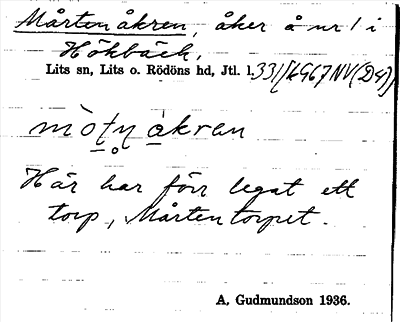 Mårtenåkren, åker å nr 1 i
Hökbäck,
Lits sn, Lits o. Rödöns hd, Jtl. l.
åkran
Här har förr legat ett
torp, Mårtentorpet.
A. Gudmundson 1936.